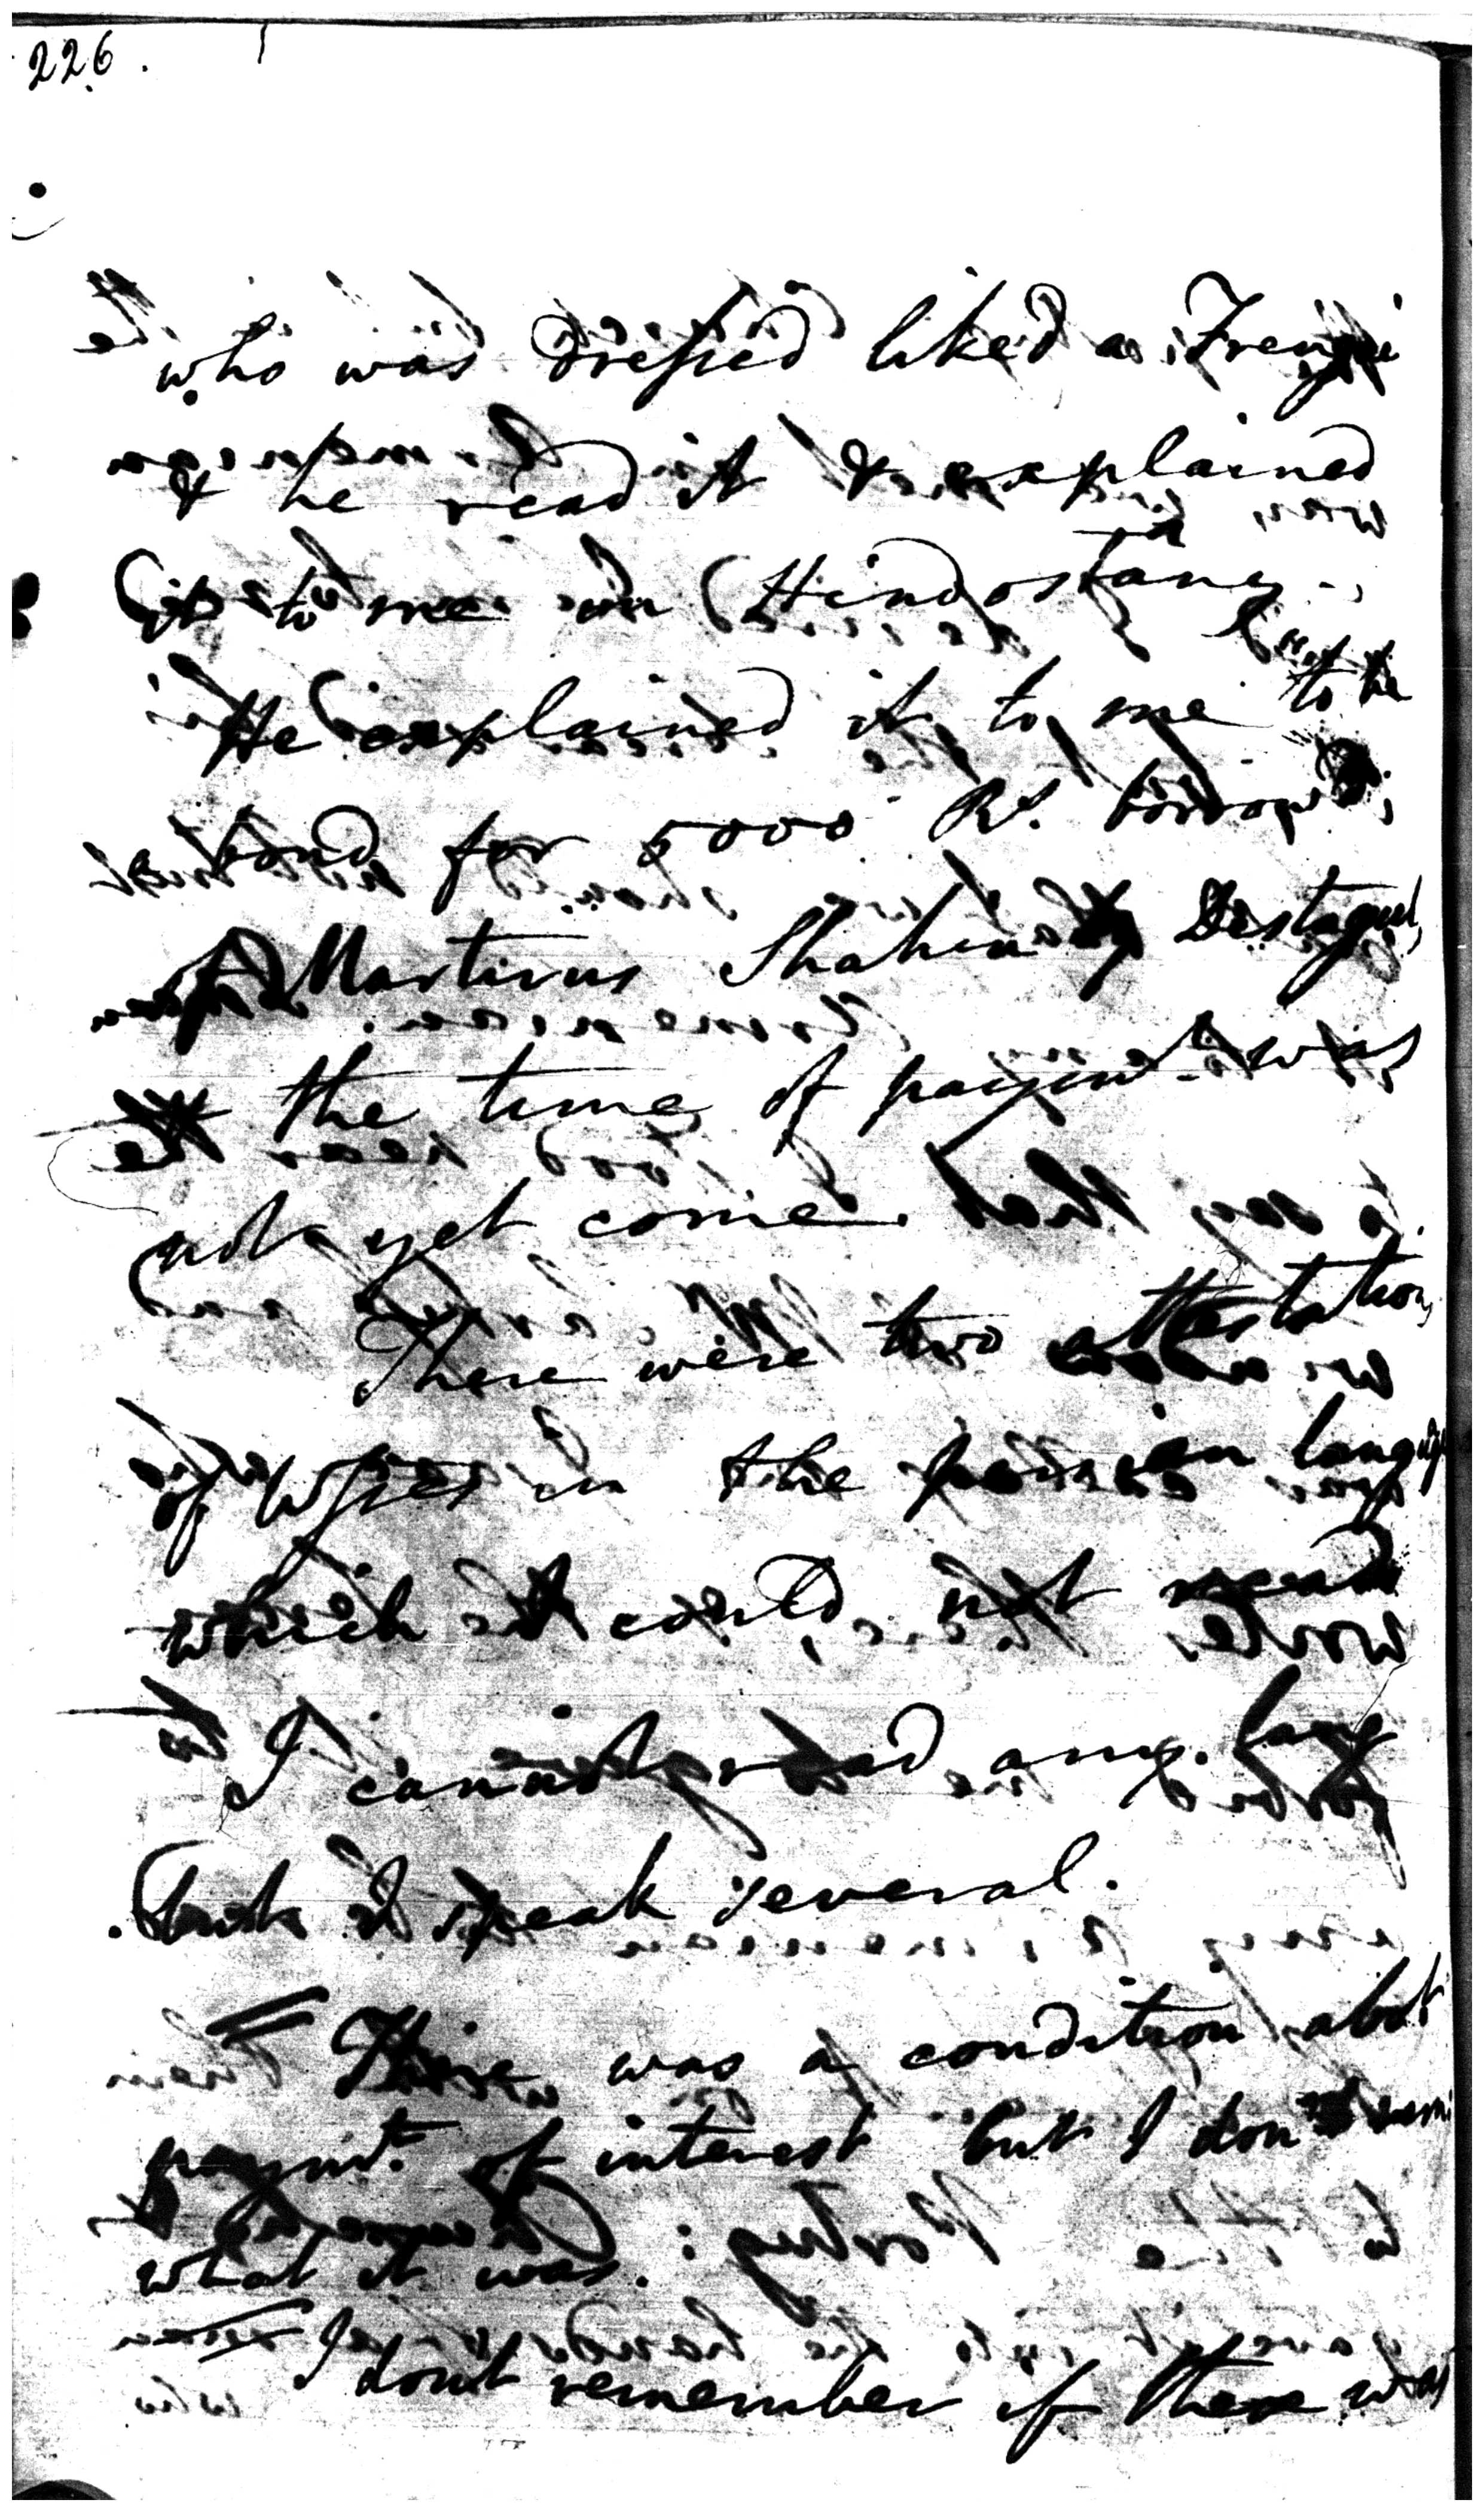 226.
who was dressed liked a Frengi
& he read it & explained
it to me in Hindostany
He explained it to me to be
a bond for 5000 Rs. borrowed
of Martirus Shahin
the time of paymt. was
not yet come.
There were two attestations
of Wsses in the persian language
which I could not read
I cannot read any lang
but I speak several.
There was a condition abot
paymt. of interest but I dont rem
what it was.
I dont remember if there was